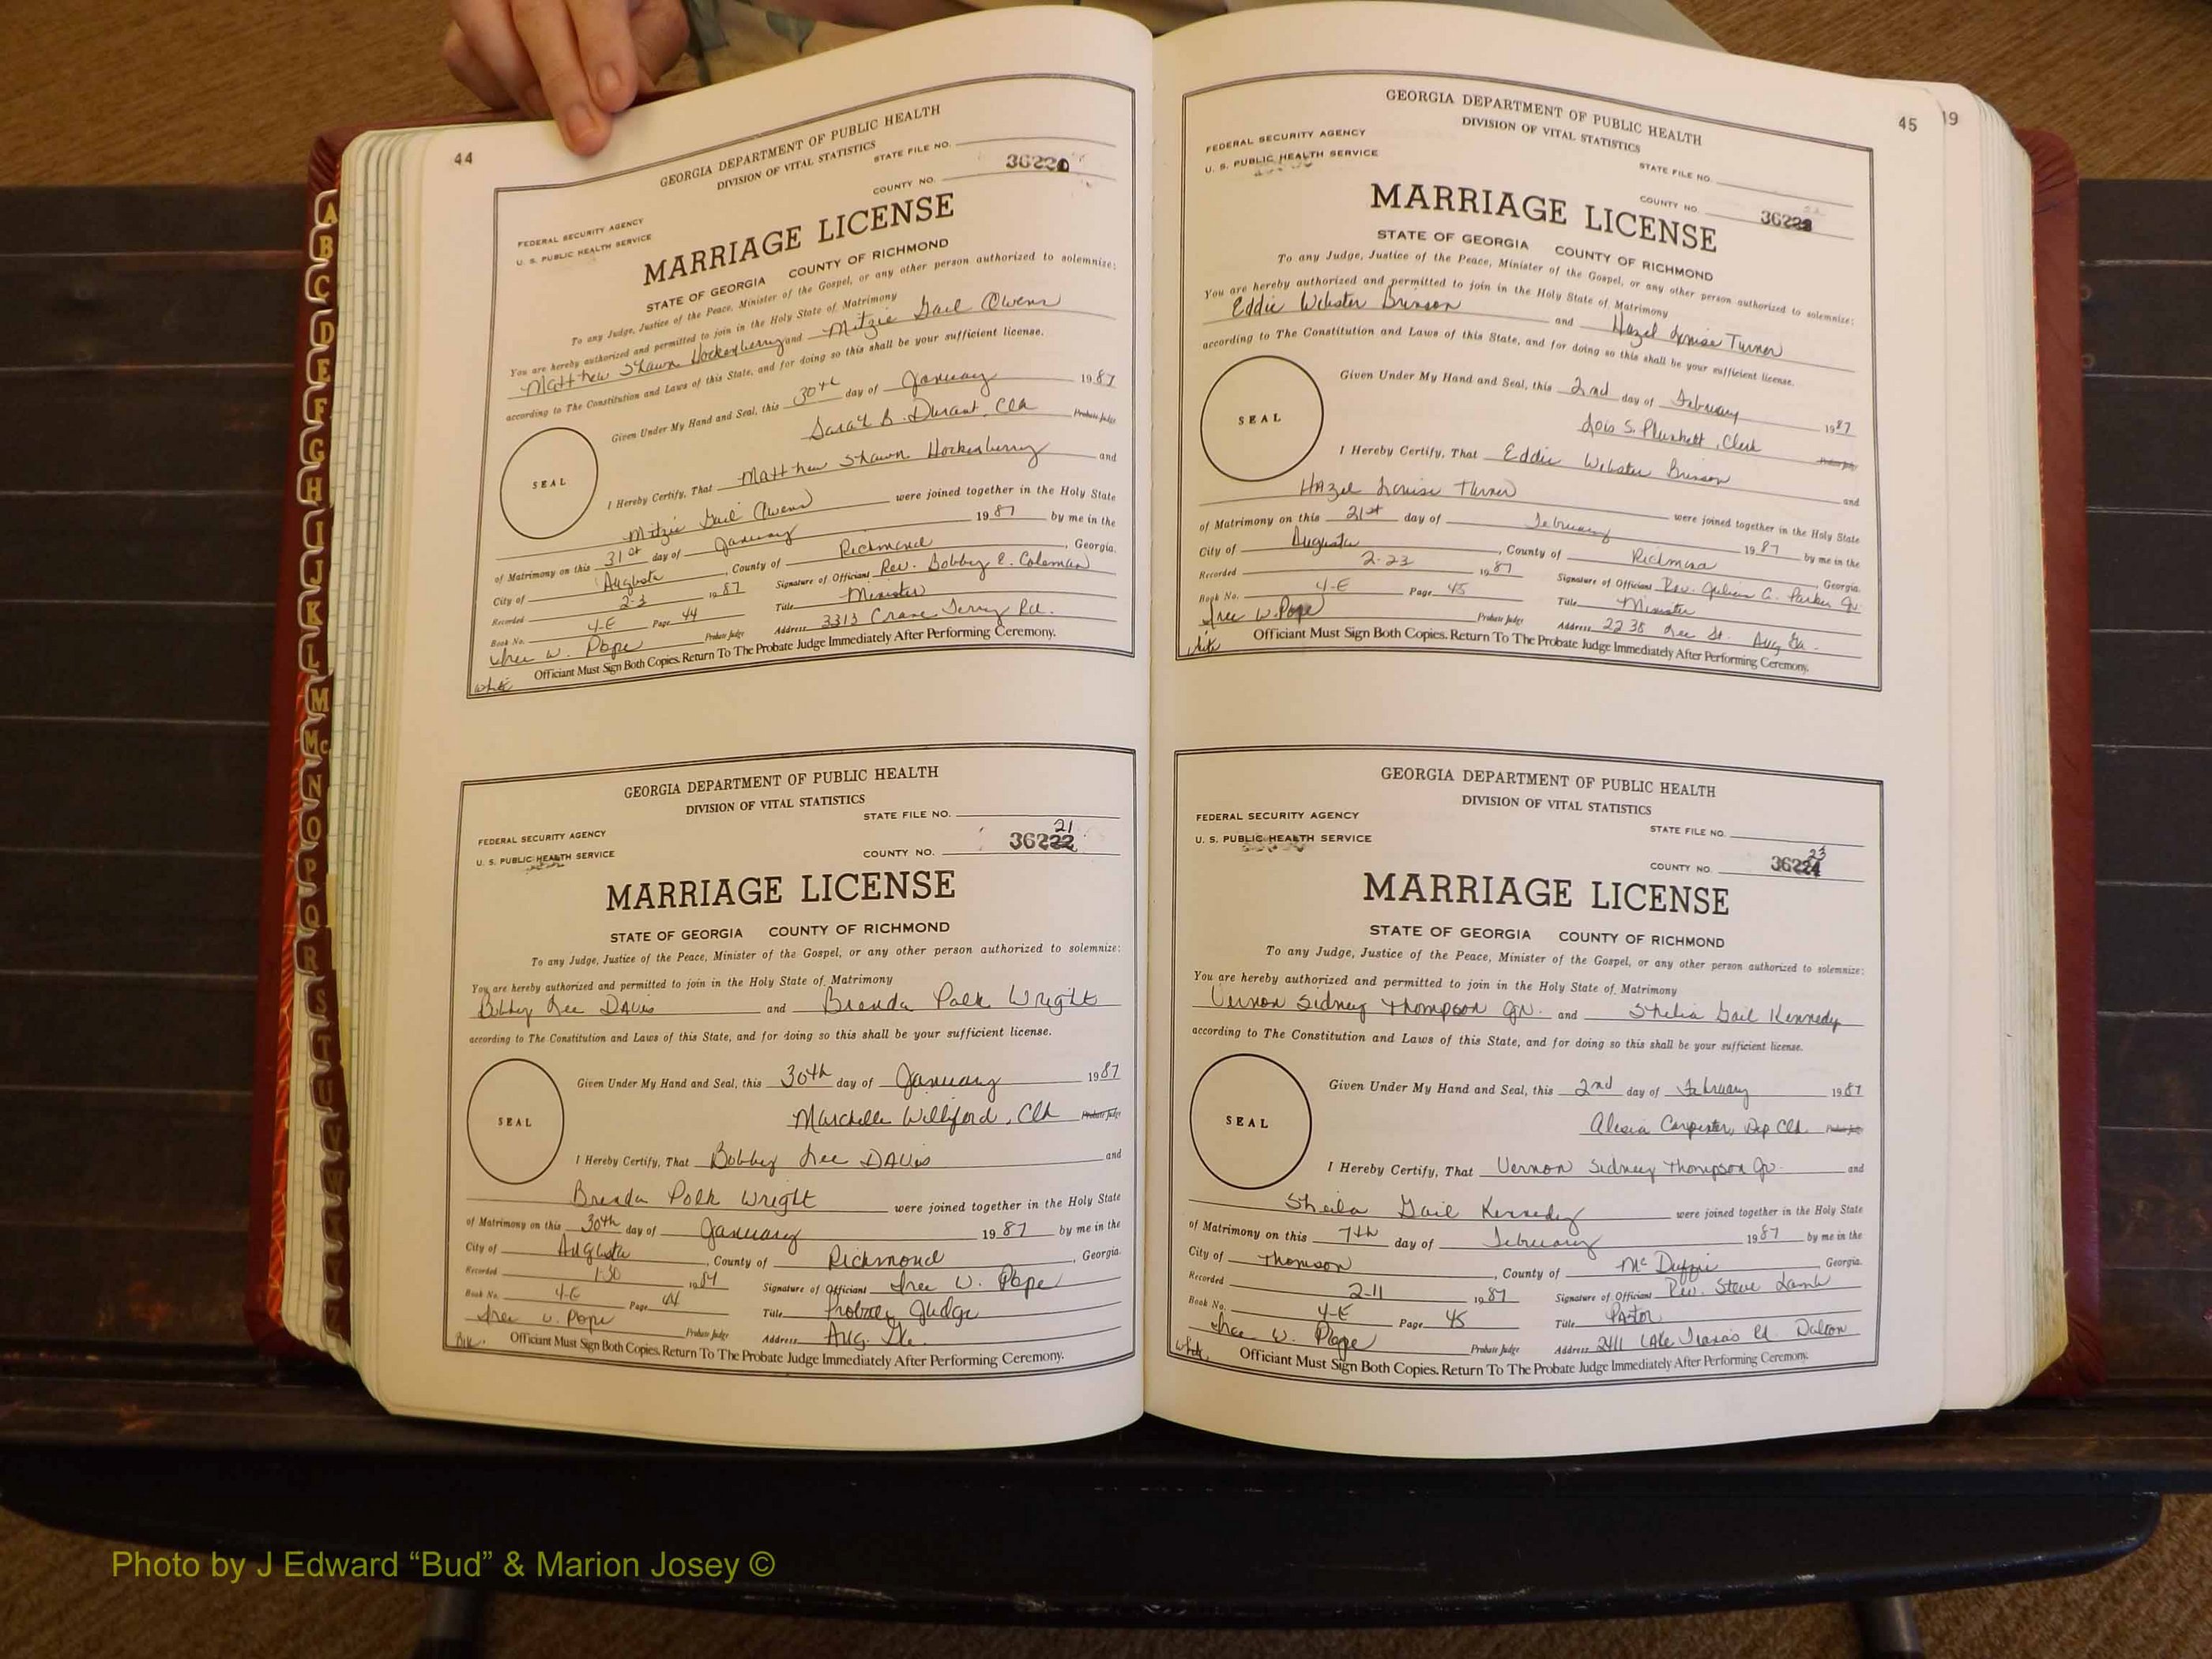 44
GEORGIA DEPARTMENT OF PUBLIC HEALTH
DIVISION OF VITAL STATISTICS
STATE FILE NO.
COUNTY NO. 36220
FEDERAL SECURITY AGENCY
U. S. PUBLIC HEALTH SERVICE
MARRIAGE LICENSE
STATE OF GEORGIA COUNTY OF RICHMOND
To any Judge, Justice of the Peace, Minister of the Gospel, or any other person authorized to solemnize:
You are hereby authorized and permitted to join in the Holy State of Matrimony
Matthew Shawn Hockenberry and Mitzie Gail Owens
according to The Constitution and Laws of this State, and for doing so this shall be your sufficient license.
Given Under My Hand and Seal, this 30th day of January 1987
Sarah B. Durant, Clk Probate Judge
SEAL
I Hereby Certify, That Matthew Shawn Hockenberry and
Mitzie Gail Owens were joined together in the Holy State
of Matrimony on this 31st day of January 1987 by me in the
City of Augusta, County of Richmond, Georgia.
Recorded 2-3 1987 Signature of Officiant Rev. Bobby E. Coleman
Book No. 4-E Page 44 Title Minister
W. Pope Probate Judge Address 3313 Crane Ferry Rd.
White Officiant Must Sign Both Copies. Return To The Probate Judge Immediately After Performing Ceremony.
GEORGIA DEPARTMENT OF PUBLIC HEALTH
DIVISION OF VITAL STATISTICS
STATE FILE NO.
FEDERAL SECURITY AGENCY
U. S. PUBLIC HEALTH SERVICE
21
COUNTY NO. 36222
MARRIAGE LICENSE
STATE OF GEORGIA COUNTY OF RICHMOND
To any Judge, Justice of the Peace, Minister of the Gospel, or any other person authorized to solemnize:
You are hereby authorized and permitted to join in the Holy State of Matrimony
Bobby Lee Davis and Brenda Polk Wright
according to The Constitution and Laws of this State, and for doing so this shall be your sufficient license.
Given Under My Hand and Seal, this 30th day of January 1987
Marchelle Williford, Clk Probate Judge
SEAL
I Hereby Certify, That Bobby Lee Davis and
Brenda Polk Wright were joined together in the Holy State
of Matrimony on this 30th day of January 1987 by me in the
City of Augusta, County of Richmond, Georgia.
Recorded 1-30 19 Signature of Officiant W. Pope
Book No. 4-E Page 44 Title Probate Judge
W. Pope Probate Judge Address Aug. Ga.
Blk. Officiant Must Sign Both Copies. Return To The Probate Judge Immediately After Performing Ceremony.
45
19
GEORGIA DEPARTMENT OF PUBLIC HEALTH
DIVISION OF VITAL STATISTICS
FEDERAL SECURITY AGENCY
U. S. PUBLIC HEALTH SERVICE
STATE FILE NO.
COUNTY NO.
MARRIAGE LICENSE
STATE OF GEORGIA COUNTY OF RICHMOND
To any Judge, Justice of the Peace, Minister of the Gospel, or any other person authorized to solemnize:
You are hereby authorized and permitted to join in the Holy State of Matrimony
Eddie Webster Brinson and Hazel Louise Turner
according to The Constitution and Laws of this State, and for doing so this shall be your sufficient license.
Given Under My Hand and Seal, this 2nd day of February 1987
Lois S. Plunkett, Clerk Probate Judge
SEAL
I Hereby Certify, That Eddie Webster Brinson and
Hazel Louise Turner were joined together in the Holy State
of Matrimony on this 21st day of February 1987 by me in the
City of Augusta, County of Richmond, Georgia.
Recorded 2-23 1987 Signature of Officiant Rev. Julian C. Parker Jr.
Book No. 4-E Page 45 Title Minister
W. Pope Probate Judge Address 2238 Lee St. Aug Ga.
Officiant Must Sign Both Copies. Return To The Probate Judge Immediately After Performing Ceremony.
GEORGIA DEPARTMENT OF PUBLIC HEALTH
DIVISION OF VITAL STATISTICS
FEDERAL SECURITY AGENCY
U. S. PUBLIC HEALTH SERVICE
STATE FILE NO.
23
COUNTY NO. 36224
MARRIAGE LICENSE
STATE OF GEORGIA COUNTY OF RICHMOND
To any Judge, Justice of the Peace, Minister of the Gospel, or any other person authorized to solemnize:
You are hereby authorized and permitted to join in the Holy State of Matrimony
Vernon Sidney Thompson Jr. and Shelia Gail Kennedy
according to The Constitution and Laws of this State, and for doing so this shall be your sufficient license.
Given Under My Hand and Seal, this 2nd day of February 1987
Alesia Carpenter, Dep Clk. Probate Judge
SEAL
I Hereby Certify, That Vernon Sidney Thompson Jr. and
Sheila Gail Kennedy were joined together in the Holy State
of Matrimony on this 7th day of February 1987 by me in the
City of Thomson, County of McDuffie Georgia.
Recorded 2-11 1987 Signature of Officiant Rev. Steve Lamb
Book No. 4-E Page 45 Title Pastor
W. Pope Probate Judge Address 2411 Lake Rd. Dalton
White Officiant Must Sign Both Copies. Return To The Probate Judge Immediately After Performing Ceremony.
A
B
C
D
E
F
G
H
I
J
K
L
M
Mc
N
O
P
Q
R
S
T
U
V
W
Photo by J Edward “Bud” & Marion Josey ©